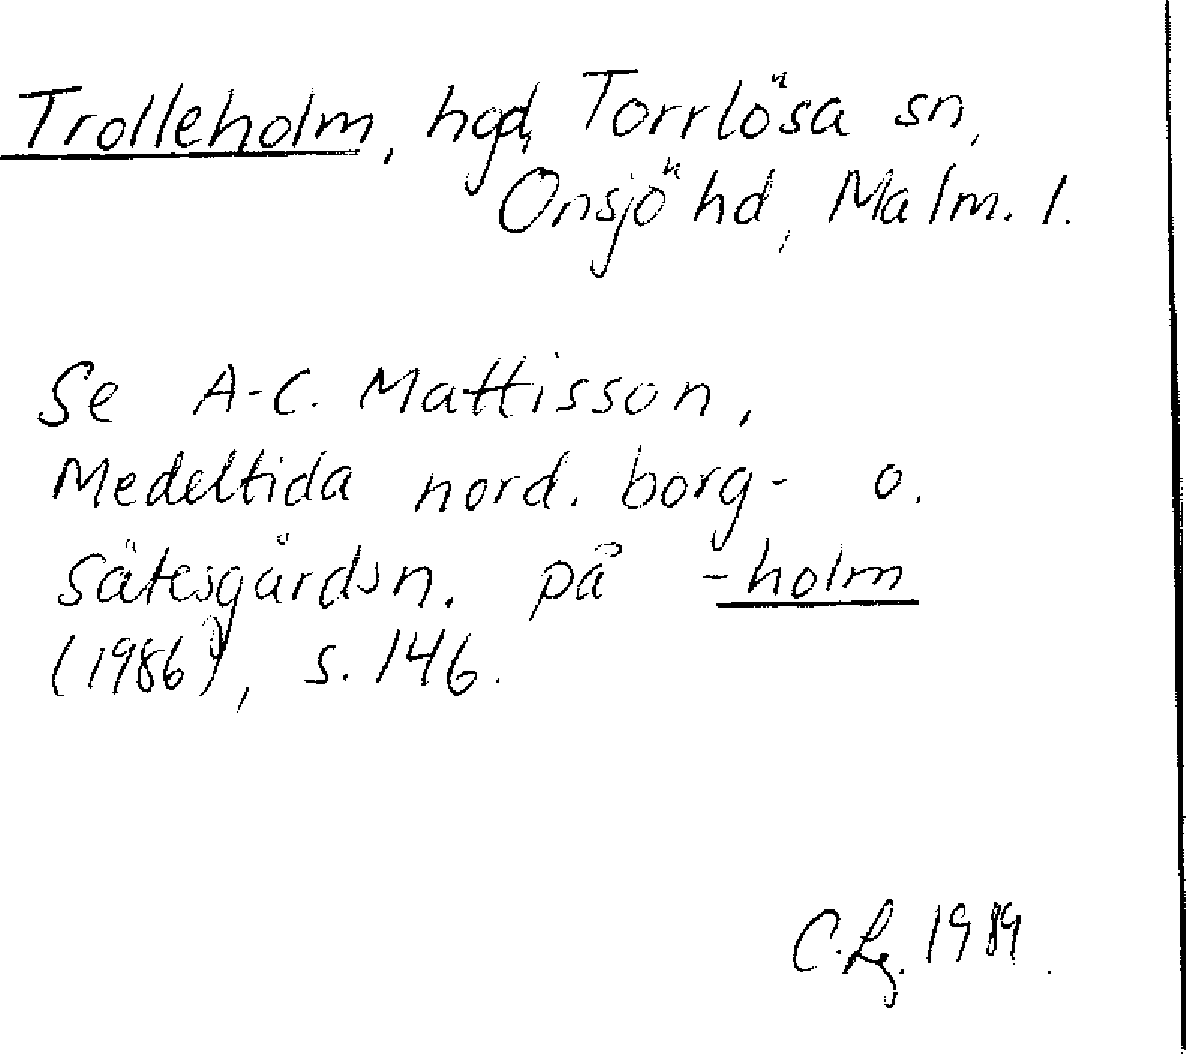 Trolleholm, hgd, Torrlösa sn,
Onsjö hd, Malm. l.
Se A-C. Mattisson,
Medeltida nord. borg- o.
sätesgårdsn. på -holm
(1986), s. 146.
C. Lg. 1989.